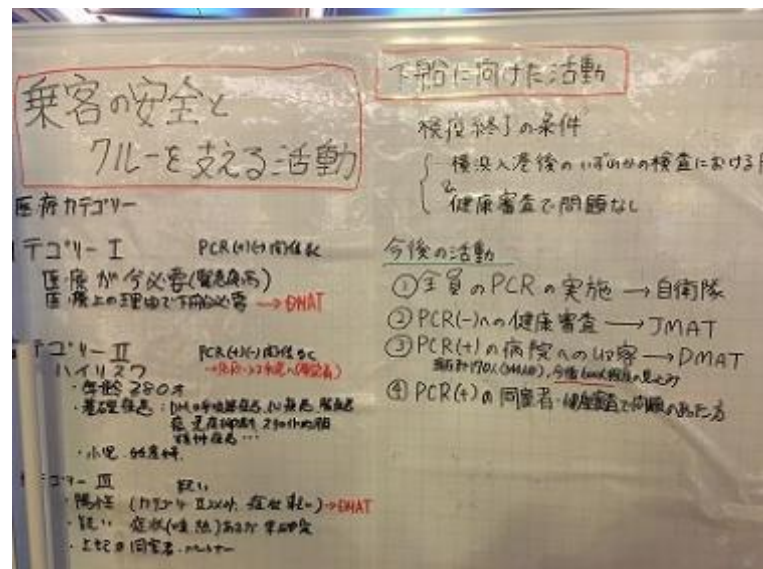 乗客の安全と
クルーを支える活動
医療カテゴリー
テゴリーⅠ PCR(+)(-)関係なく
医療が今必要(緊急疾病)
医療上の理由で下船必要 →DMAT
テゴリーⅡ PCR(+)(-)関係なく
ハイリスク
・年齢≧80才
・基礎疾患:DM,呼吸器疾患,心疾患,腎疾患
・小児
テゴリーⅢ 疑い
・陽性(カテゴリーⅡ以外,症状軽い)→DMAT
・疑い 症状(咳,熱)あるが
・上記の同室者・パートナー
下船に向けた活動
検疫終了の条件
横浜入港後のいずれかの検査における
&
健康審査で問題なし
今後の活動
①全員のPCRの実施→自衛隊
②PCR(-)への健康審査→JMAT
③PCR(+)の病院への収容→DMAT
④PCR(+)の同室者・健康審査で問題のあった方